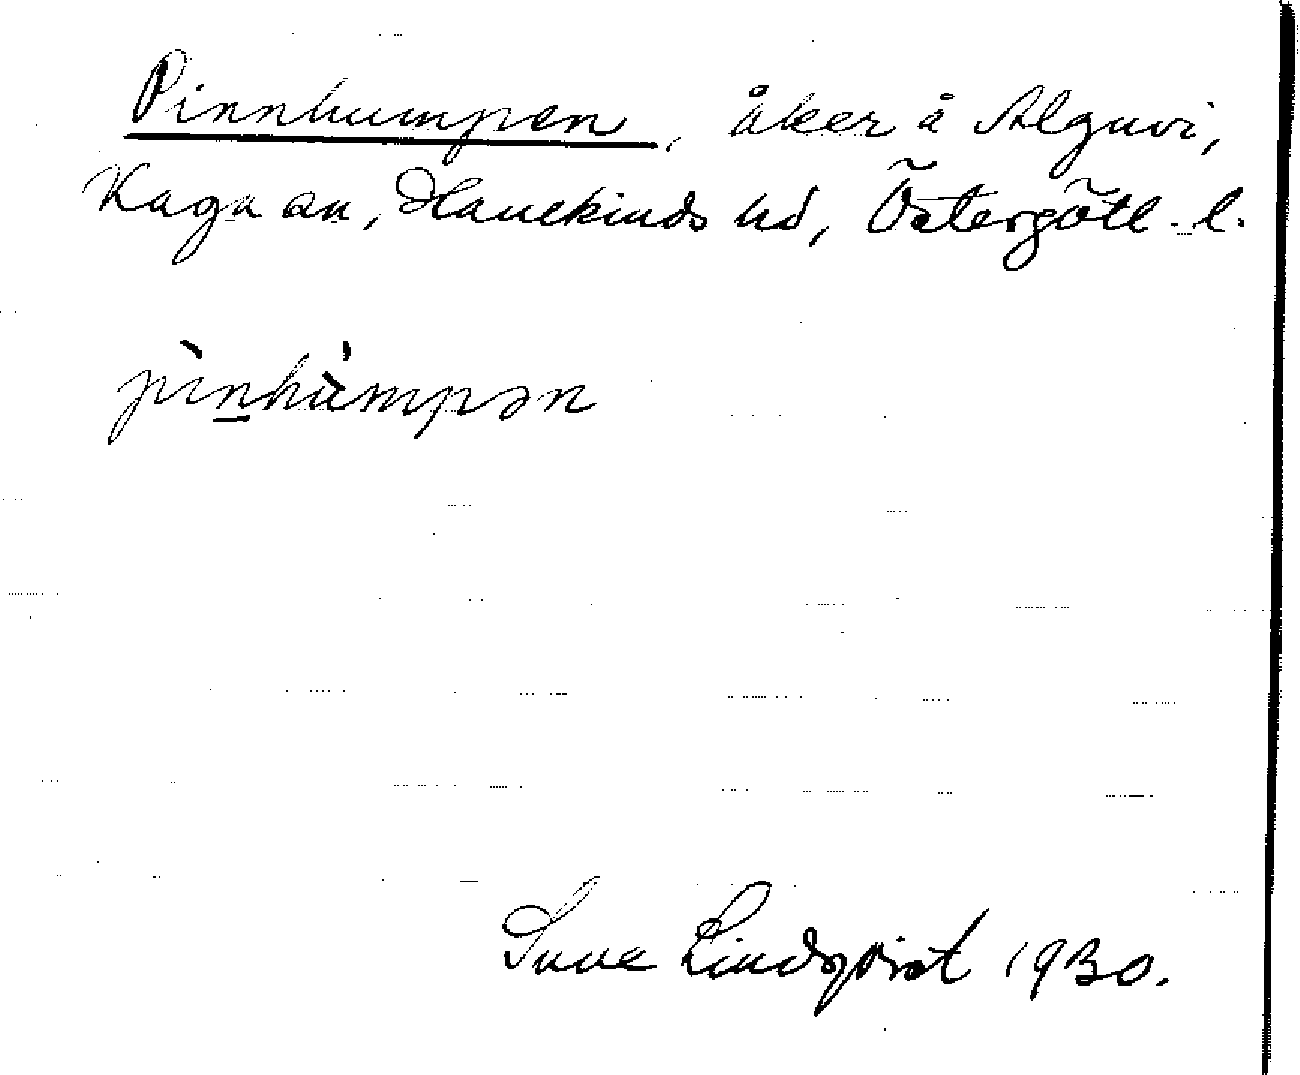 Pinnhumpen, åker å Alguvi,
Kaga sn, Hanekinds hd, Östergötl. l.
pìnhùmpən
Sune Lindqvist 1930.